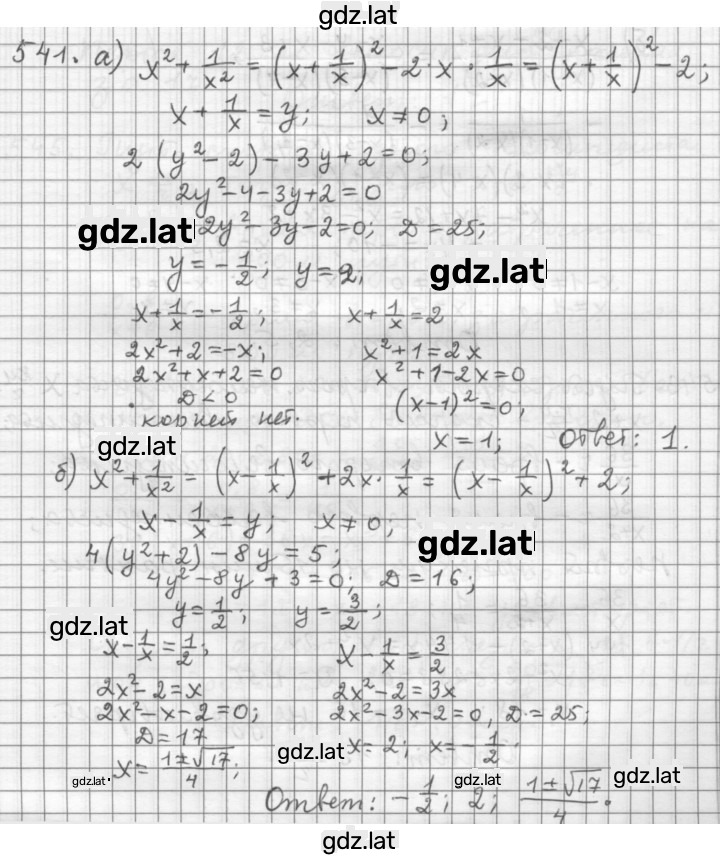 gdz.lat
541. а) x² + 1/x² = (x + 1/x)² - 2·x·1/x = (x + 1/x)² - 2;
x + 1/x = y; x ≠ 0;
2(y² - 2) - 3y + 2 = 0;
2y² - 4 - 3y + 2 = 0
gdz.lat 2y² - 3y - 2 = 0; D = 25;
y = -1/2; y = 2, gdz.lat
x + 1/x = -1/2; x + 1/x = 2
2x² + 2 = -x; x² + 1 = 2x
2x² + x + 2 = 0 x² + 1 - 2x = 0
D < 0 (x - 1)² = 0;
корней нет.
x = 1; Ответ: 1.
gdz.lat
б) x² + 1/x² = (x - 1/x)² + 2x·1/x = (x - 1/x)² + 2;
x - 1/x = y; x ≠ 0;
gdz.lat
4(y² + 2) - 8y = 5;
4y² - 8y + 3 = 0; D = 16;
y = 1/2; y = 3/2;
gdz.lat
x - 1/x = 1/2; x - 1/x = 3/2
2x² - 2 = x 2x² - 2 = 3x
2x² - x - 2 = 0; 2x² - 3x - 2 = 0, D = 25;
D = 17
gdz.lat x = 2; x = -1/2.
gdz.lat x = (1±√17)/4;
gdz.lat gdz.lat
Ответ: -1/2; 2; (1±√17)/4.
gdz.lat